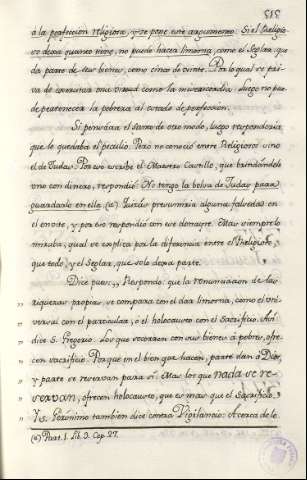 515
á la perfeccion religiosa, y se pone este argumento: Si el Religio
so dexa quanto tiene, no puede hacer limosna, como el Seglar, que
da parte de sus bienes, como cinco de veinte. Por lo qual se pri
va de exercitar una virtud como la misericordia. Luego no pue
de pertenecer la pobreza al estado de perfeccion.
Si pensára el Santo de otro modo, luego respondería
que le quedaba el peculio. Pero no conoció entre Religiosos sino
el de Judas. Por eso escribe el Maestro Castillo, que brindandole
uno con dinero, respondió: No tengo la bolsa de Judas para
guardarlo en ella. (a) Judas presumiria alguna falsedad en
el envite, y por eso respondió con ese donayre. Mas siempre lo
miraba, qual se explica por la diferencia entre el Religioso,
que todo, y el Seglar, que solo dexa parte.
Dice pues, „ Respondo: que la renunciacion de las
„ riquezas propias se compara con el dar limosna, como el uni
„ versal con el particular, ó el holocausto con el Sacrificio. Asi
„ dice S. Gregorio. Los que socorren con sus bienes á pobres, ofre
„ cen sacrificio. Porque en el bien que hacen, parte dan á Dios,
„ y parte se reservan para sí. Mas los que nada se re-
„ servan, ofrecen holocausto, que es mas que el Sacrificio.
„ Y S. Gerónimo tambien dice contra Vigilancio: Acerca de lo
(a) Part. 1. Lib. 3. Cap. 27.